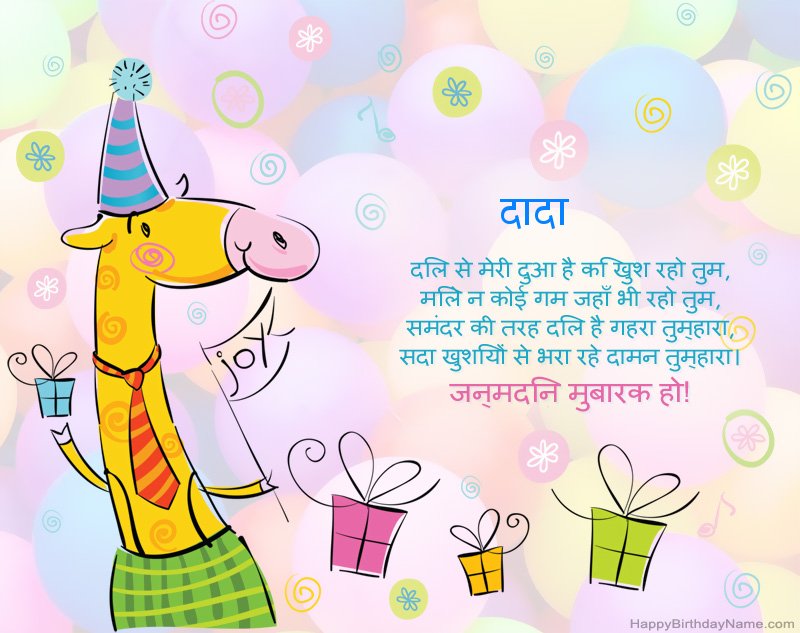 दादा
joy
दिल से मेरी दुआ है कि खुश रहो तुम,
मिले न कोई गम जहाँ भी रहो तुम,
समंदर की तरह दिल है गहरा तुम्हारा,
सदा खुशियों से भरा रहे दामन तुम्हारा।
जन्मदिन मुबारक हो!
HappyBirthdayName.com